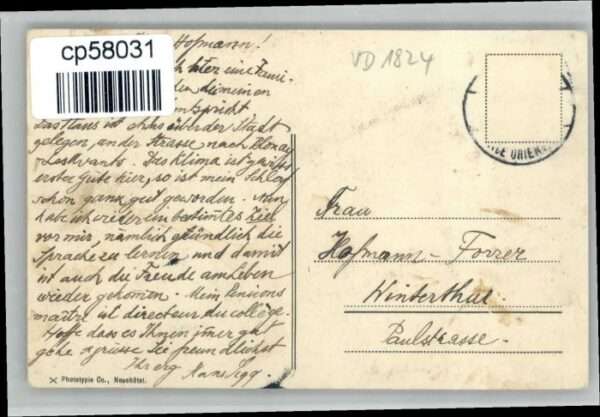 cp58031
VD 1824
Hofmann!
hier eine Fami-
den die meinen
entspricht
das Haus ist etwas über der Stadt
gelegen, an der Strasse nach Blonay
Das Klima ist gewiss
erster Güte hier, so ist mein Schlaf
schon ganz gut geworden. Nun
habe ich wieder ein bestimmtes Ziel
vor mir, nämlich gründlich die
Sprache zu lernen und damit
ist auch die Freude am Leben
wieder gekommen. Mein Pensions
maître ist directeur du collège.
Hoffe dass es Ihnen immer gut
gehe & grüsse Sie freundlichst
Ihr erg
Hans
Frau
Hofmann-Forrer
Winterthur.
Paulstrasse.
Phototypie Co., Neuchâtel.